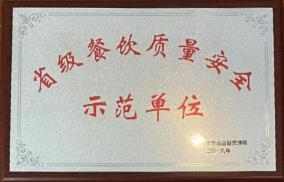 省级餐饮质量安全
示范单位
市场监督管理局
二〇一九年